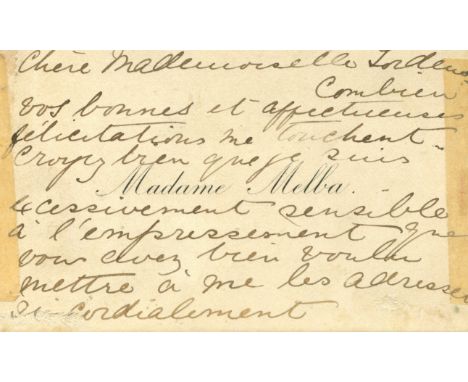 Chère Mademoiselle
Combien
vos bonnes et affectueuses
félicitations me touchent -
Croyez bien que je suis
Madame Melba.
excessivement sensible
à l'empressement que
vous avez bien voulu
mettre à me les adresser
si cordialement